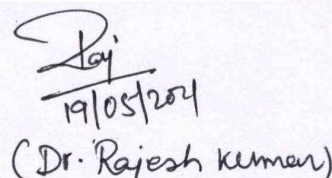 Raj
19/05/2021
(Dr. Rajesh Kumar)